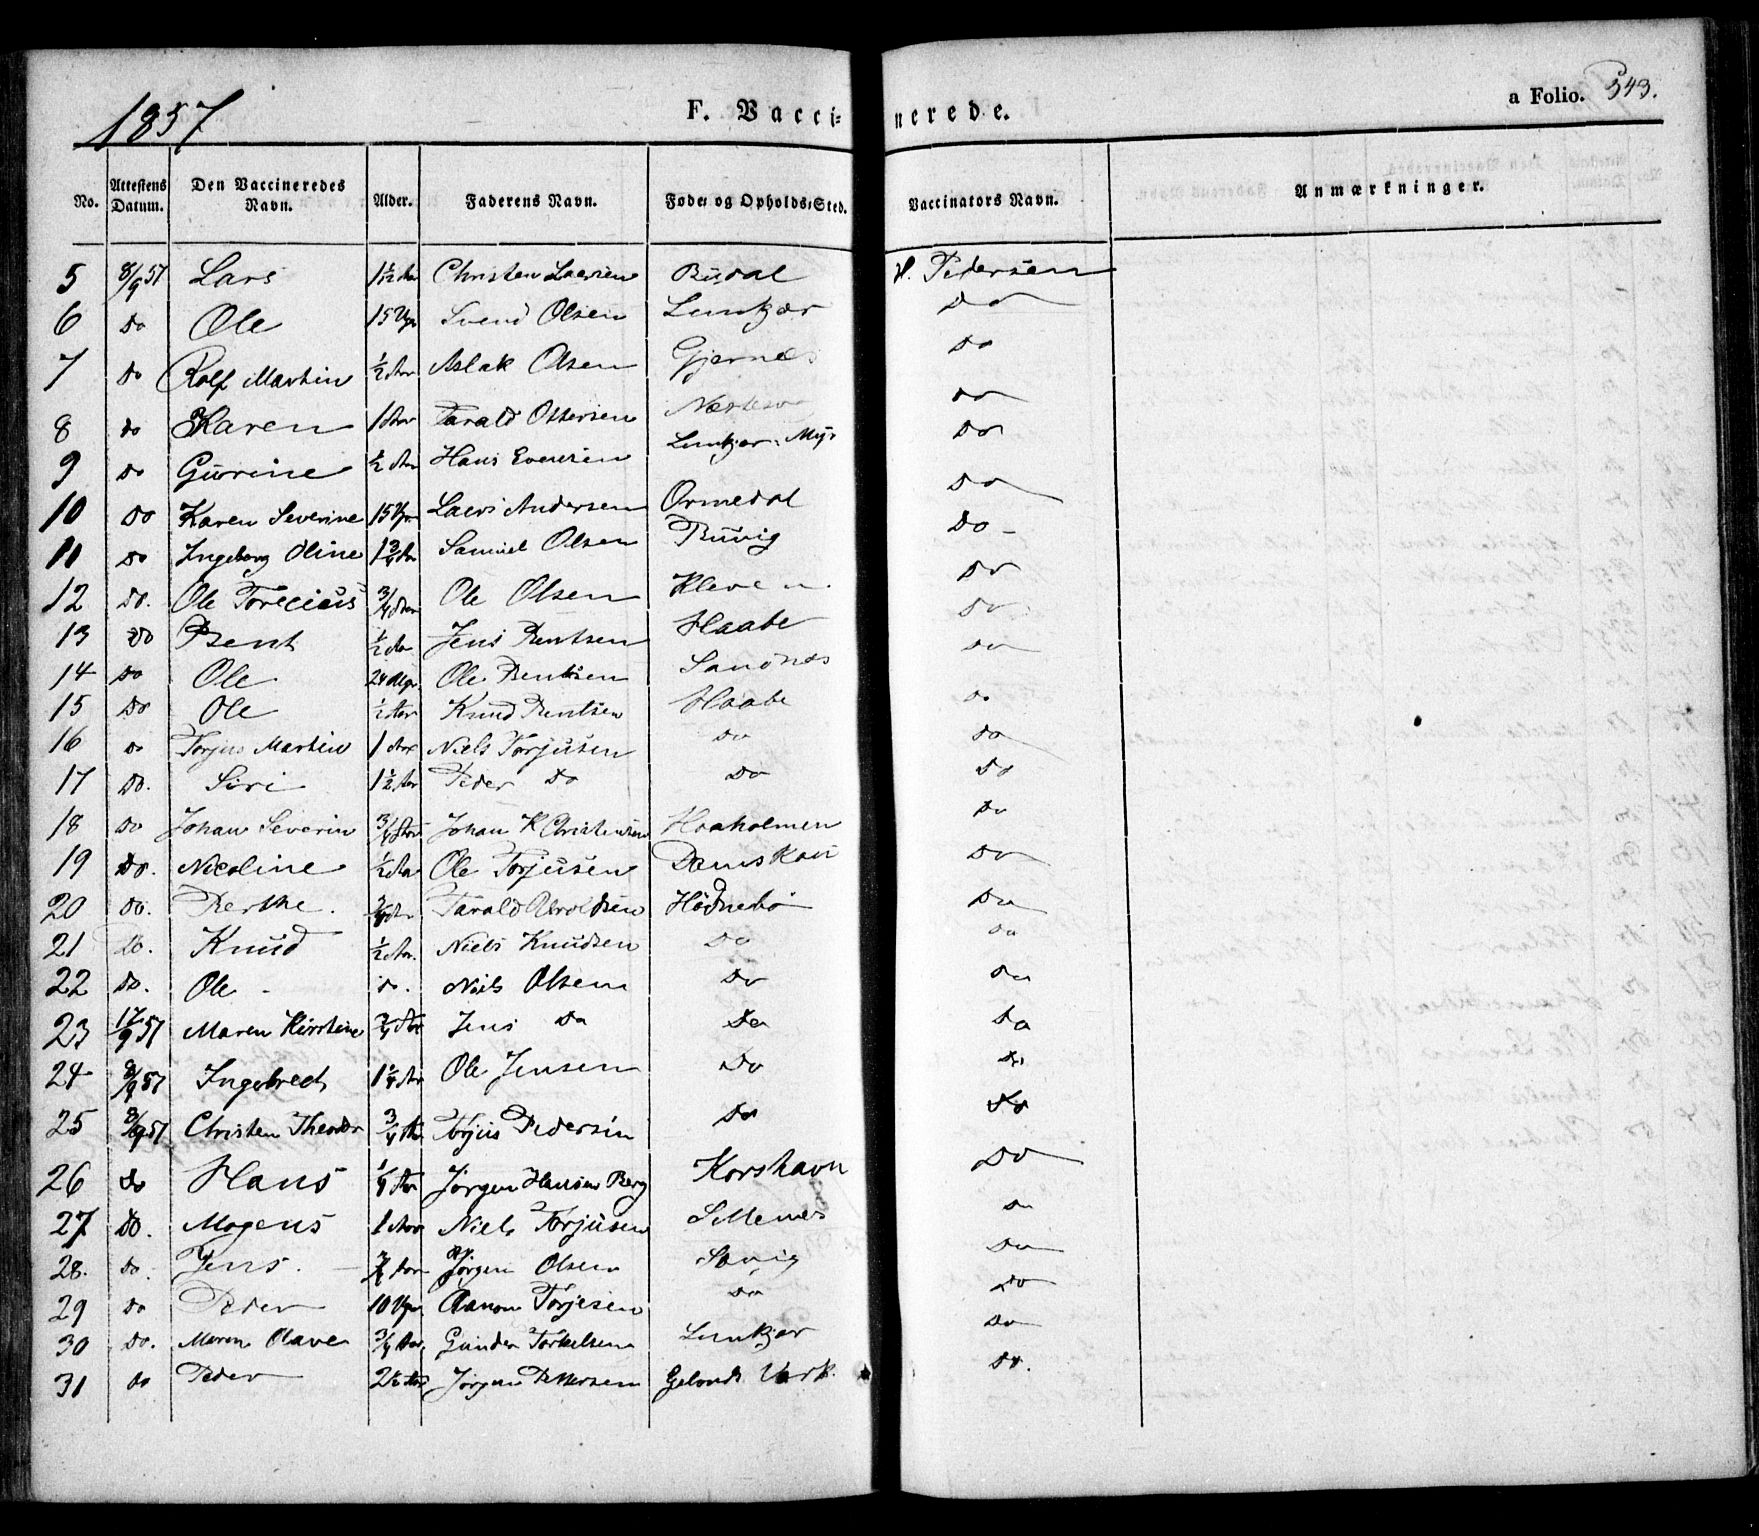 1857 F. Vacci- nerede. a Folio. 343.
No. Attestens Datum. Den Vaccineredes Navn. Alder. Faderens Navn. Føde- og Opholds-Sted. Vaccinators Navn. Anmærkninger.
5 8/9 57 Lars 1½ Aar Christen Larsen Budal P. Pedersen
6 Do Ole 15 Uger Svend Olsen Lunkjær Do
7 Do Rolf Martin ½ Aar Aslak Olsen Gjernes Do
8 Do Karen 1 Aar Tarald Ottersen Do
9 Do Gurine ½ Aar Hans Evensen Lunkjær Myr Do
10 Do Karen Severine 15 Uger Laers Andersen Ormedal Do
11 Do Ingeborg Oline 1¾ Aar Samuel Olsen Buvig Do -
12 Do. Ole Torecius ¾ Aar Ole Olsen Kleven Do
13 Do Bent ½ Aar Jens Bentsen Haabe Do
14 Do Ole 24 Uger. Ole Bentsen Sandnes Do
15 Do Ole ½ Aar Knud Bentsen Haabe Do
16 Do Torjus Martin 1 Aar Niels Torjusen Do Do
17 Do. Siri 1½ Aar Peder Do Do Do
18 Do Johan Severin ¾ Aar Johan K Christensen Haaholmen Do
19 Do. Nicoline ½ Aar Ole Torjusen Do
20 Do. Berthe. ¾ Aar Tarald Aroldsen Hødnebø Do
21 Do. Knud ½ Aar. Niels Knudsen Do Do
22 Do. Ole - Do. Niels Olsen Do Do
23 17/9 57 Maren Kirstine ¾ Aar Jens Do Do Do
24 8/9 57 Ingebrect 1¼ Aar Ole Jensen Do Do
25 8/9 57 Christen Theodor ¾ Aar Torjus Pedersen Do Do
26 Do Hans ¼ Aar Jørgen Hansen Berg Korshavn Do
27 Do. Mogens 1 Aar Niels Torjusen Sellenes Do
28. Do. Jens. ¾ Aar Jørgen Olsen Do
29 Do Peder 10 Uger Aanon Torjesen Do Do
30 Do. Maren Olave ¾ Aar. Gunder Torkelsen Lunkjær Do
31 Do Peder 2½ Aar Jørgen Pettersen Do.